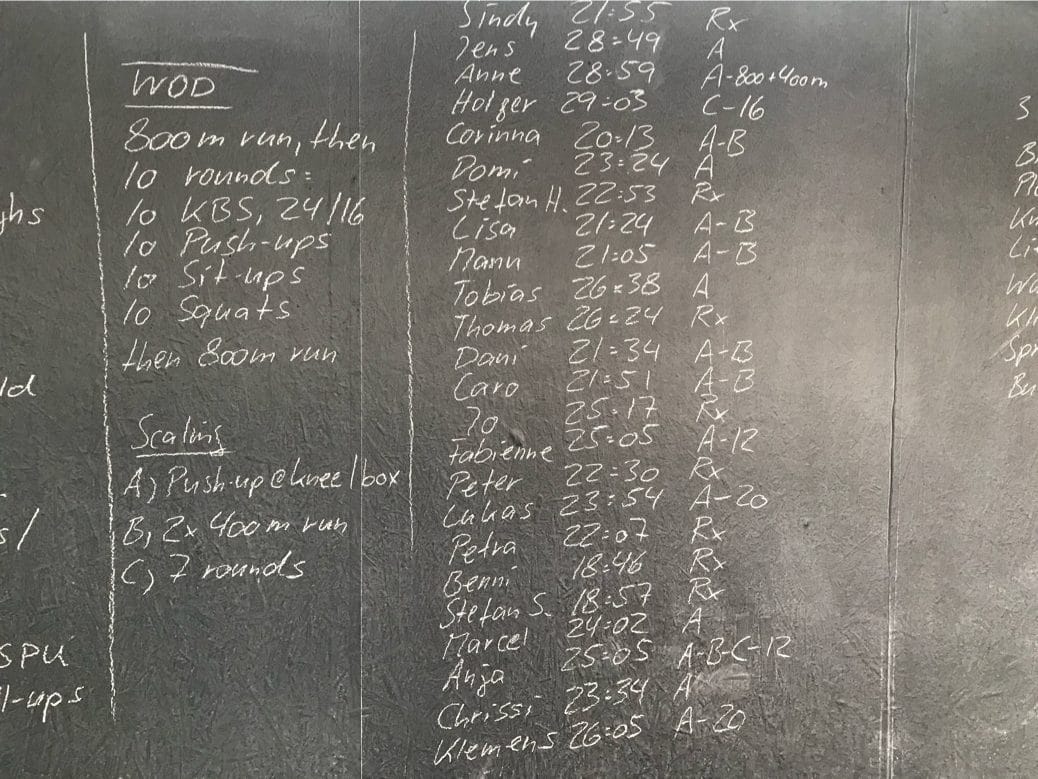 ld
SPU
l-ups
WOD
800m run, then
10 rounds:
10 KBS, 24/16
10 Push-ups
10 Sit-ups
10 Squats
then 800m run
Scaling
A) Push-up @ knee/box
B) 2x 400m run
C) 7 rounds
Sindy 21:55 Rx
Jens 28:49 A
Anne 28:59 A-800+400m
Holger 29:03 C-16
Corinna 20:13 A-B
Domi 23:24 A
Stefan H. 22:53 Rx
Lisa 21:24 A-B
Manu 21:05 A-B
Tobias 26:38 A
Thomas 26:24 Rx
Dani 21:34 A-B
Caro 21:51 A-B
Jo 25:17 Rx
Fabienne 25:05 A-12
Peter 22:30 Rx
Lukas 23:54 A-20
Petra 22:07 Rx
Benni 18:46 Rx
Stefan S. 18:57 Rx
Marcel 24:02 A
Anja 25:05 A-B-C-12
Chrissi 23:34 A
Klemens 26:05 A-20
3